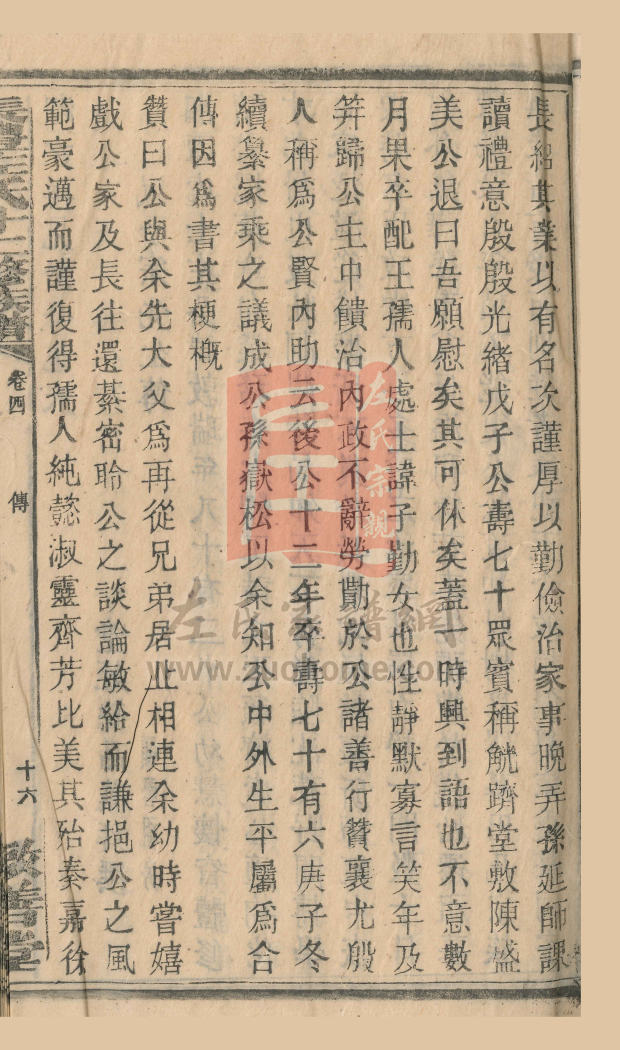 長紹其業以有名次謹厚以勤儉治家事晚弄孫延師課
讀禮意殷殷光緒戊子公壽七十眾賓稱觥躋堂敷陳盛
美公退曰吾願慰矣其可休矣蓋一時興到語也不意數
月果卒配王孺人處士諱子勤女也性靜默寡言笑年及
笄歸公主中饋治內政不辭勞勩於公諸善行贊襄尤殷
人稱為公賢內助云後公十二年卒壽七十有六庚子冬
續纂家乘之議成公孫嶽松以余知公中外生平屬為合
傳因為書其梗概
贊曰公與余先大父為再從兄弟居止相連余幼時嘗嬉
戲公家及長往還綦密聆公之談論敏給而謙挹公之風
範豪邁而謹復得孺人純懿淑靈齊芳比美其殆秦嘉徐
左氏十二修族譜
卷四
傳
十六
敦善堂
左氏宗親
左氏家譜網